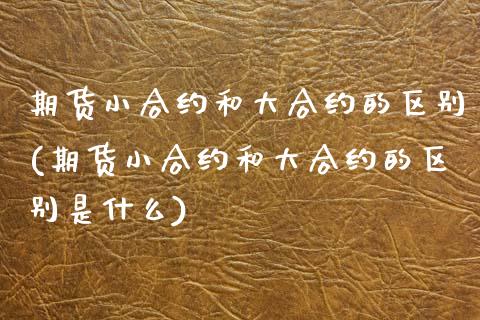 期货小合约和大合约的区别
(期货小合约和大合约的区
别是什么)